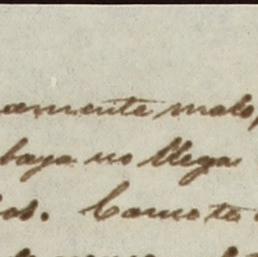 amente malo,
baya no llega
os. Como te